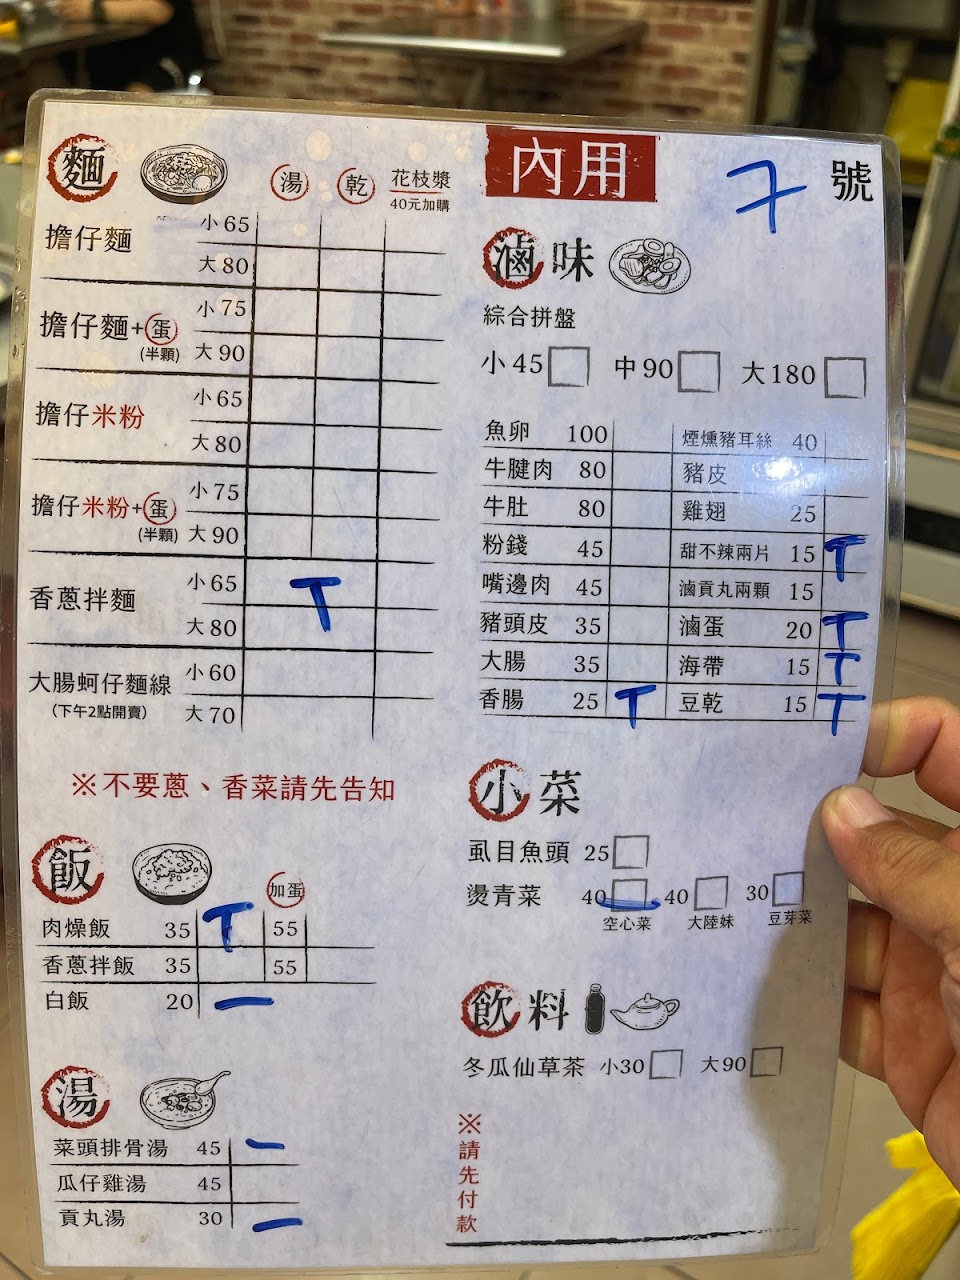 內用
7 號
麵 湯 乾 花枝漿
40元加購
擔仔麵 小 65
大 80
擔仔麵+蛋 小 75
(半顆) 大 90
擔仔米粉 小 65
大 80
擔仔米粉+蛋 小 75
(半顆) 大 90
香蔥拌麵 小 65 T
大 80
大腸蚵仔麵線 小 60
(下午2點開賣) 大 70
※不要蔥、香菜請先告知
飯 加蛋
肉燥飯 35 T 55
香蔥拌飯 35 55
白飯 20 一
湯
菜頭排骨湯 45 一
瓜仔雞湯 45
貢丸湯 30 一
滷味
綜合拼盤
小 45 中 90 大 180
魚卵 100 煙燻豬耳絲 40
牛腱肉 80 豬皮
牛肚 80 雞翅 25
粉錢 45 甜不辣兩片 15 T
嘴邊肉 45 滷貢丸兩顆 15
豬頭皮 35 滷蛋 20 T
大腸 35 海帶 15 T
香腸 25 T 豆乾 15 T
小菜
虱目魚頭 25
燙青菜 40 一 40 30
空心菜 大陸妹 豆芽菜
飲料
冬瓜仙草茶 小30 大90
※請先付款